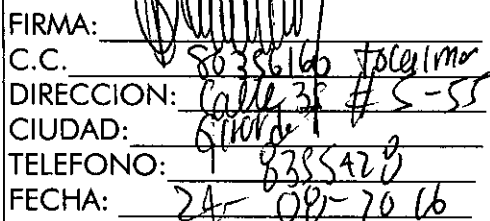 FIRMA:
C.C. 80356160 Tocaima
DIRECCION: Calle 35 # 5-55
CIUDAD: Girardot
TELEFONO: 8355420
FECHA: 24-09-2016